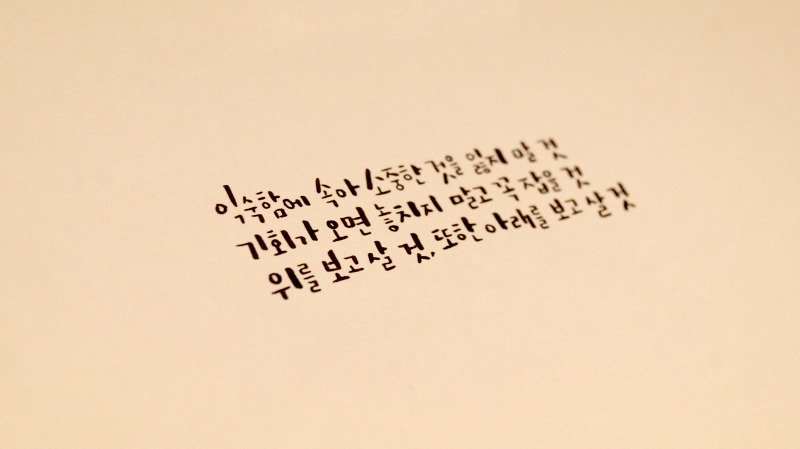 익숙함에 속아 소중한 것을 잃지 말 것
기회가 오면 놓치지 말고 꼭 잡을 것
위를 보고 살 것, 또한 아래를 보고 살 것